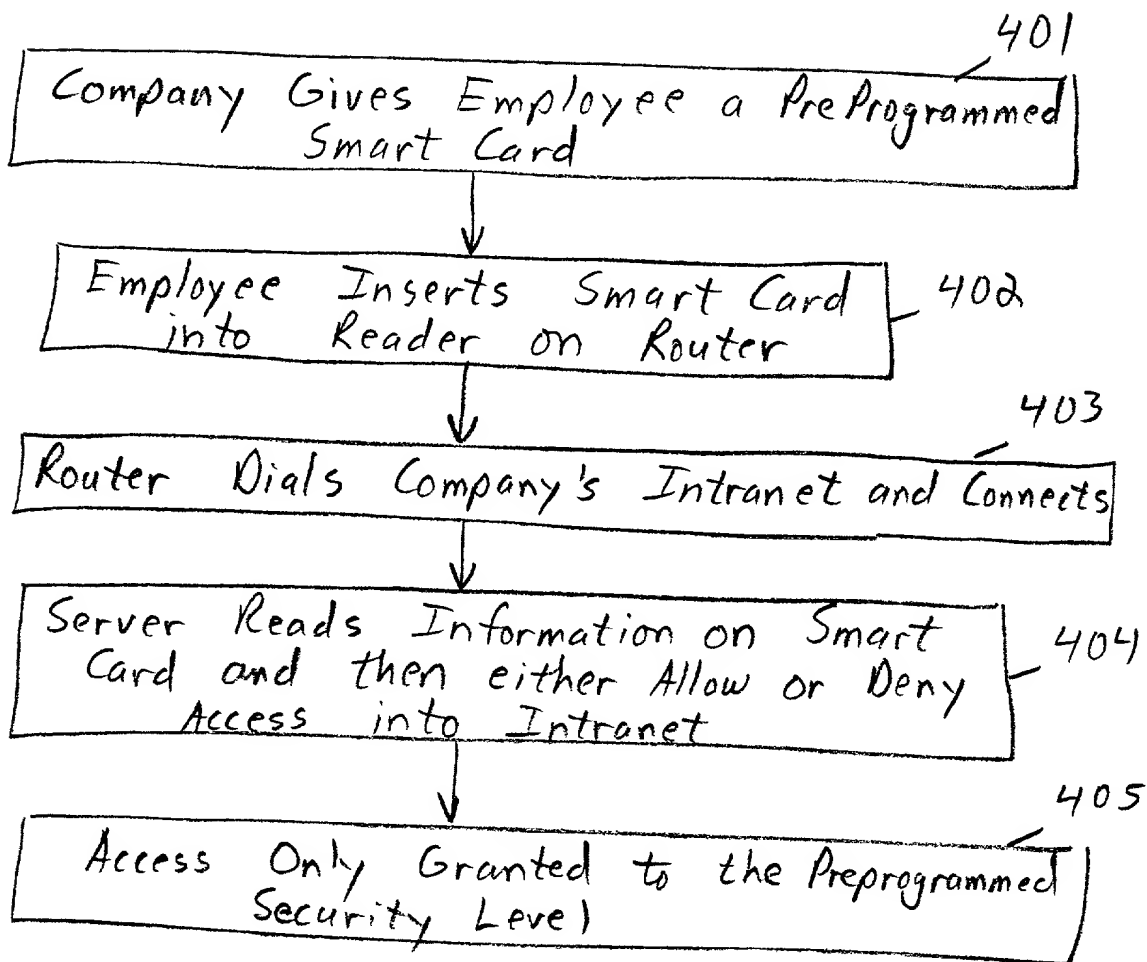 401
Company Gives Employee a PreProgrammed
Smart Card
Employee Inserts Smart Card
into Reader on Router
402
403
Router Dials Company's Intranet and Connects
Server Reads Information on Smart
Card and then either Allow or Deny
Access into Intranet
404
405
Access Only Granted to the Preprogrammed
Security Level